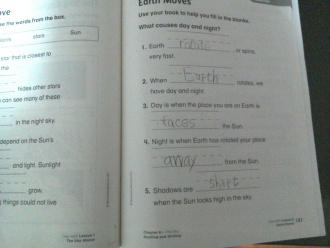 ove
e the words from the box.
stars Sun
star that is closest to
the
hides other stars
can see many of these
in the night sky.
depend on the Sun's
and light. Sunlight
grow,
things could not live
Earth Moves
Use your book to help you fill in the blanks.
What causes day and night?
1. Earth rotate or spins,
very fast.
2. When Earth rotates, we
have day and night.
3. Day is when the place you are on Earth is
faces the Sun.
4. Night is when Earth has rotated your place
away from the Sun.
5. Shadows are short
when the Sun looks high in the sky.
Reading and Writing